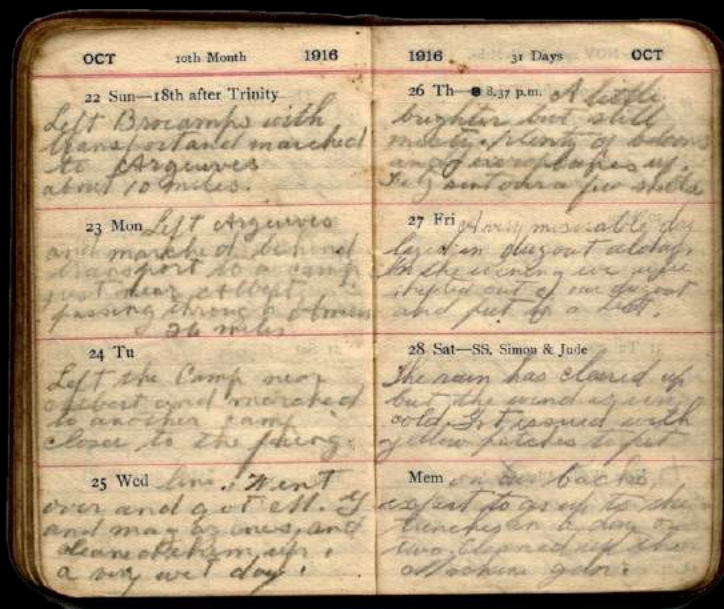 OCT 10th Month 1916
22 Sun—18th after Trinity
Left Brocamps with
transport and marched
to Argeuves
about 10 miles.
23 Mon Left Argeuves
and marched behind
transport to a camp
just near Albert,
passing through
26 miles
24 Tu
Left the Camp near
Albert and marched
to another camp
closer to the firing
25 Wed line. Went
over and got M. G
and magazines, and
cleaned them up.
a very wet day.
1916 31 Days OCT
26 Th— 8.37 p.m. A little
brighter but still
misty. plenty of
and aeroplanes up.
sent over a few shells
27 Fri A very miserable day
in dugout all day
In the evening we were
out of our dugout
and put in a tent.
28 Sat—SS. Simon & Jude
The rain has cleared up
but the wind is very
cold. Got issued with
yellow patches to put
Mem on our backs,
expect to go up to the
trenches in a day or
two. Cleaned up the
Machine gun.